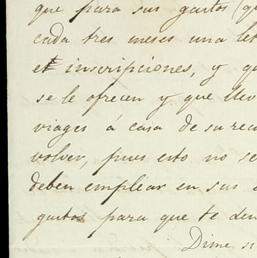 que para sus gastos (q
cada tres meses una let
et inscripciones, y qu
se le ofrecen y que llev
viages á casa de su rec
volver, pues esto no se
deben emplear en sus
gastos para que te den
Dime si